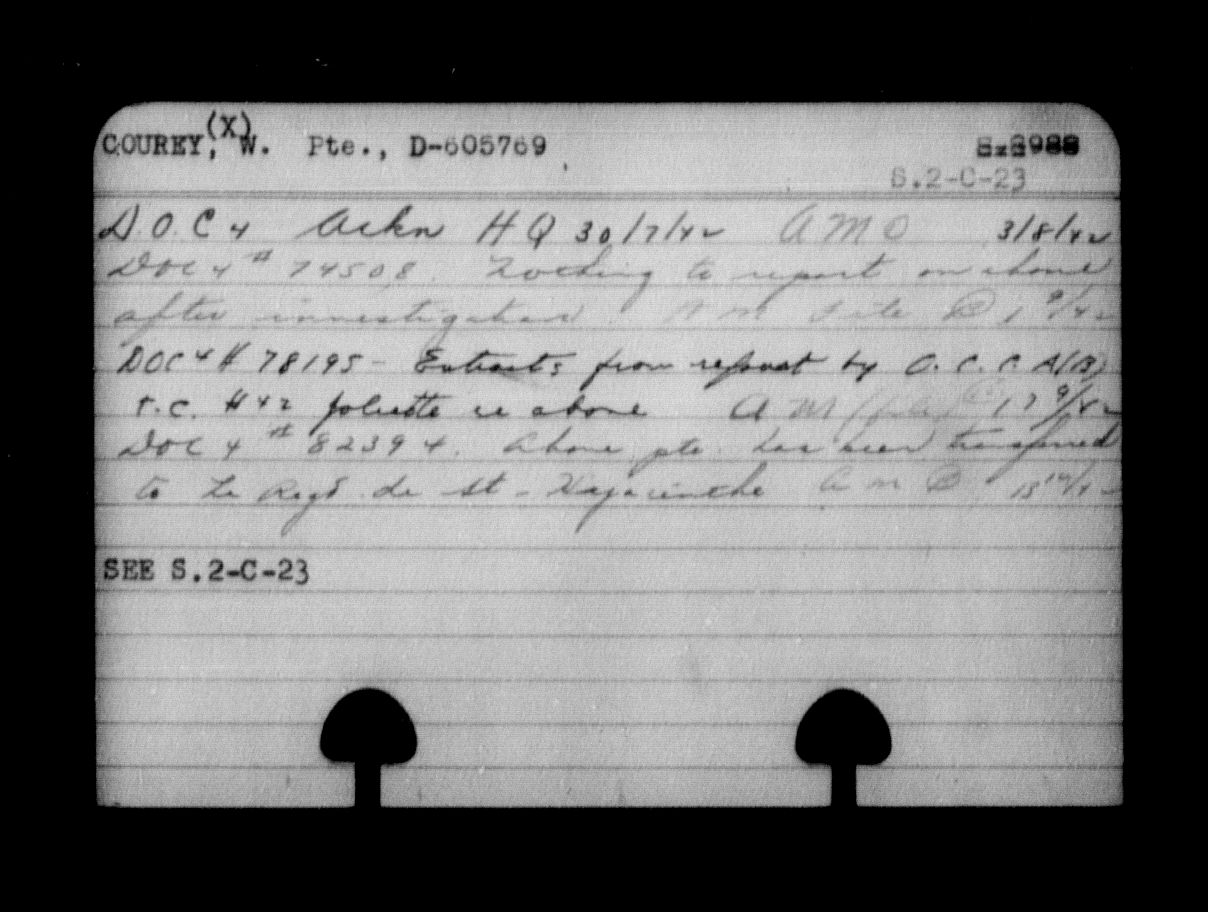 (X)
COUREY, W. Pte., D-605769
S.2-C-23
D.O.C 4 Ackn HQ 30/7/42 AMO 3/8/42
DOC 4 # 74508. Nothing to report on above
after investigation. A M File 1 9/42
DOC 4 # 78195 - Extracts from report by O. C. C A(B)
T.C. #42 Joliette re above A M 17 9/42
DOC 4 # 82394. Above pte. has been transferred
to Le Regt de St-Hyacinthe A M
SEE S.2-C-23